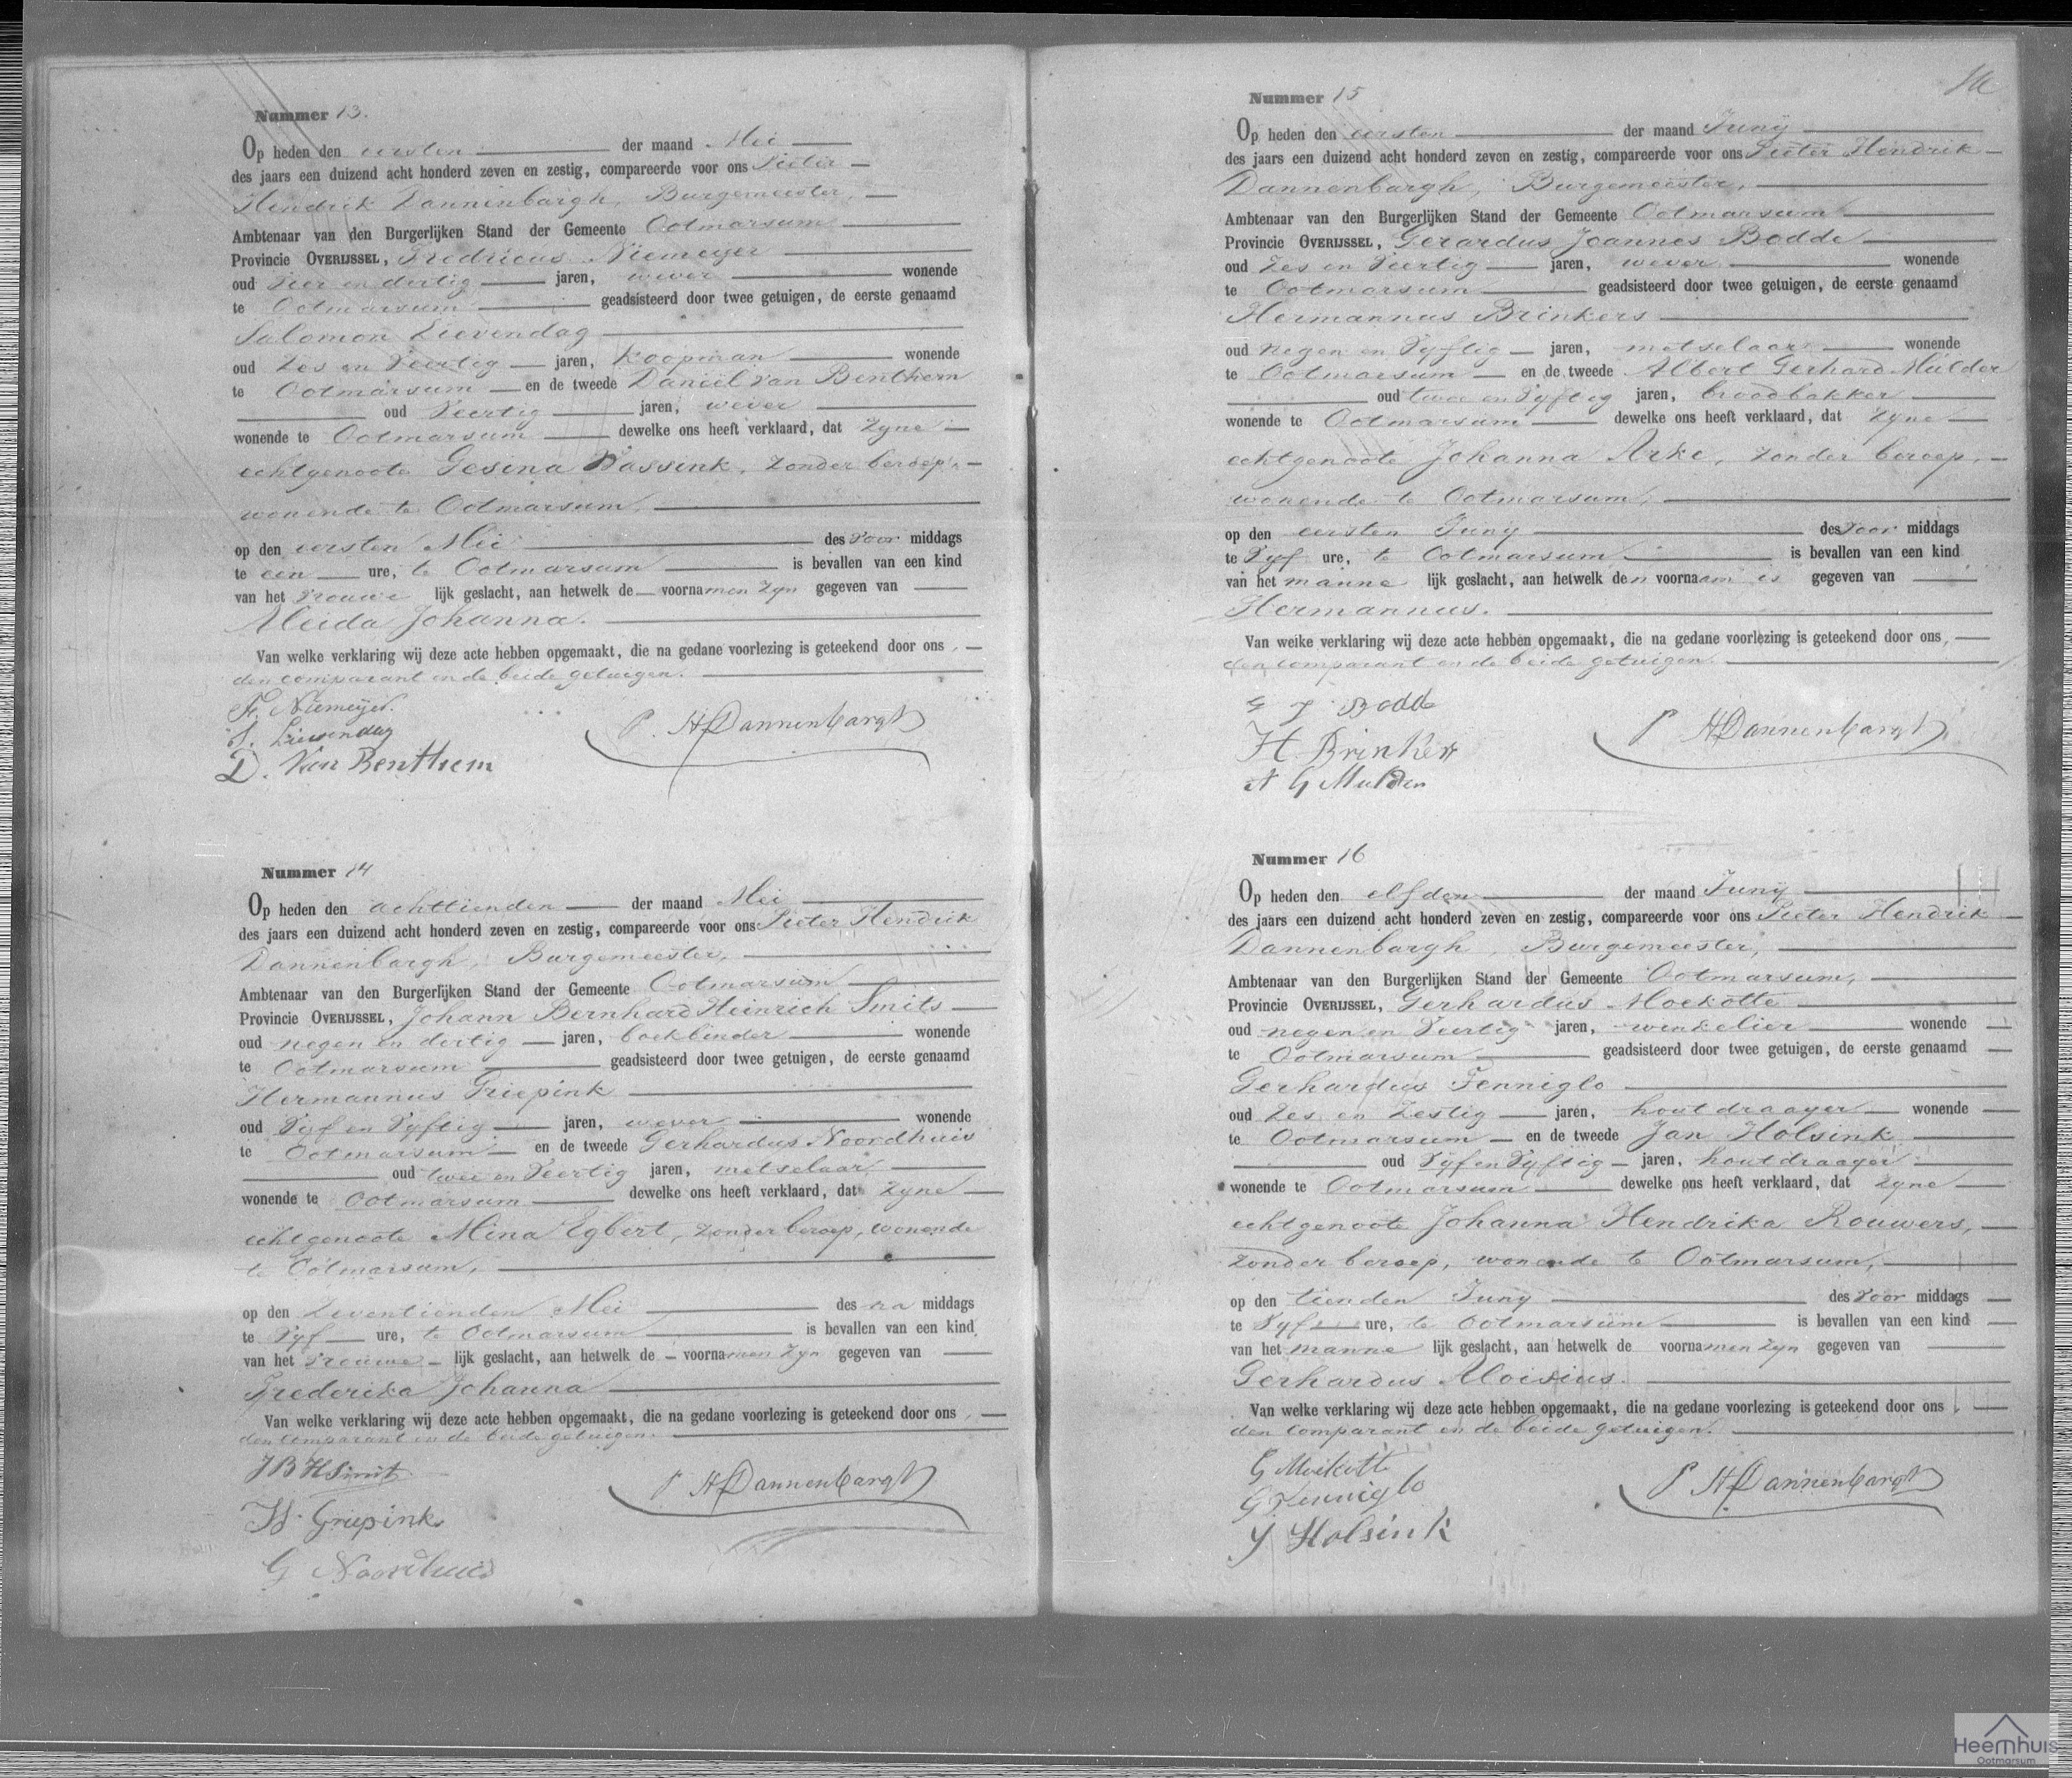 Nummer 13.
Op heden den eersten der maand Mei
des jaars een duizend acht honderd zeven en zestig, compareerde voor ons Pieter
Hendrik Dannenbargh, Burgemeester,
Ambtenaar van den Burgerlijken Stand der Gemeente Ootmarsum
Provincie OVERIJSSEL, Fredricus Niemeijer
oud Vier en dertig jaren, wever wonende
te Ootmarsum geadsisteerd door twee getuigen, de eerste genaamd
Salomon Lievendag
oud Zes en Veertig jaren, Koopman wonende
te Ootmarsum en de tweede Daniel van Benthem
oud Veertig jaren, wever
wonende te Ootmarsum dewelke ons heeft verklaard, dat zyne
echtgenoote Gesina Wassink, zonder beroep,
wonende te Ootmarsum,
op den eersten Mei des voor middags
te een ure, te Ootmarsum is bevallen van een kind
van het Vrouwe lijk geslacht, aan hetwelk de voornamen zyn gegeven van
Aleida Johanna.
Van welke verklaring wij deze acte hebben opgemaakt, die na gedane voorlezing is geteekend door ons,
den comparant en de beide getuigen.
Fr. Niemeijer.
S. Lievendag
D. Van Benthem
P. H Dannenbargh
Nummer 14
Op heden den achttienden der maand Mei
des jaars een duizend acht honderd zeven en zestig, compareerde voor ons Pieter Hendrik
Dannenbargh, Burgemeester,
Ambtenaar van den Burgerlijken Stand der Gemeente Ootmarsum
Provincie OVERIJSSEL, Johann Bernhard Heinrich Smits
oud negen en dertig jaren, boekbinder wonende
te Ootmarsum geadsisteerd door twee getuigen, de eerste genaamd
Hermannus Griepink
oud Vyf en Vyftig jaren, wever wonende
te Ootmarsum en de tweede Gerhardus Noordhuis
oud twee en Veertig jaren, metselaar,
wonende te Ootmarsum dewelke ons heeft verklaard, dat zyne
echtgenoote Mina Egbert, zonder beroep, wonende
te Ootmarsum,
op den Zeventienden Mei des na middags
te Vyf ure, te Ootmarsum is bevallen van een kind
van het Vrouwe lijk geslacht, aan hetwelk de voornamen zyn gegeven van
Frederika Johanna
Van welke verklaring wij deze acte hebben opgemaakt, die na gedane voorlezing is geteekend door ons,
den comparant en de beide getuigen.
J B H Smit
H. Griepink
G Noordhuis
P H Dannenbargh
Nummer 15
Op heden den eersten der maand Junij
des jaars een duizend acht honderd zeven en zestig, compareerde voor ons Pieter Hendrik
Dannenbargh, Burgemeester,
Ambtenaar van den Burgerlijken Stand der Gemeente Ootmarsum
Provincie OVERIJSSEL, Gerardus Joannes Bodde
oud Zes en Veertig jaren, wever wonende
te Ootmarsum geadsisteerd door twee getuigen, de eerste genaamd
Hermannus Brinkers
oud negen en Vyftig jaren, metselaar wonende
te Ootmarsum en de tweede Albert Gerhard Mülder
oud twee en Vyftig jaren, broodbakker
wonende te Ootmarsum dewelke ons heeft verklaard, dat zyne
echtgenoote Johanna Arke, zonder beroep,
wonende te Ootmarsum,
op den eersten Juny des voor middags
te Vyf ure, te Ootmarsum is bevallen van een kind
van het manne lijk geslacht, aan hetwelk den voornaam is gegeven van
Hermannus.
Van welke verklaring wij deze acte hebben opgemaakt, die na gedane voorlezing is geteekend door ons,
den comparant en de beide getuigen.
G J Bodde
H Brinkers
A G Mulder
P H Dannenbargh
Nummer 16
Op heden den elfden der maand Junij
des jaars een duizend acht honderd zeven en zestig, compareerde voor ons Pieter Hendrik
Dannenbargh, Burgemeester,
Ambtenaar van den Burgerlijken Stand der Gemeente Ootmarsum,
Provincie OVERIJSSEL, Gerhardus Moekotte
oud negen en Veertig jaren, winkelier wonende
te Ootmarsum geadsisteerd door twee getuigen, de eerste genaamd
Gerhardus Fenniglo
oud Zes en Zestig jaren, houtdraayer wonende
te Ootmarsum en de tweede Jan Holsink
oud Vyf en Vyftig jaren, houtdraayer
wonende te Ootmarsum dewelke ons heeft verklaard, dat zyne
echtgenoote Johanna Hendrika Rouwers,
zonder beroep, wonende te Ootmarsum,
op den tienden Juny des voor middags
te Vyf ure, te Ootmarsum is bevallen van een kind
van het manne lijk geslacht, aan hetwelk de voornamen zyn gegeven van
Gerhardus Aloisius.
Van welke verklaring wij deze acte hebben opgemaakt, die na gedane voorlezing is geteekend door ons,
den comparant en de beide getuigen.
G Moekotte
G Fenniglo
J Holsink
P H Dannenbargh
Heemhuis
Ootmarsum